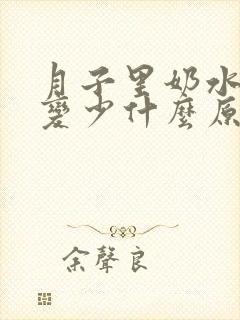 月子里奶水
变少什麼原
余聲良